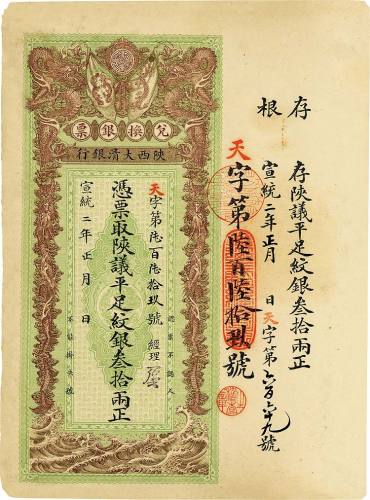 存根
存陝議平足紋銀叁拾兩正
宣統二年正月　日天字第六百六十九號
天字第陸百陸拾玖號
兌換銀票
陝西大清銀行
天字第陸百陸拾玖號　經理
憑票取陝議平足紋銀叁拾兩正
宣統二年正月　日
認票不認人